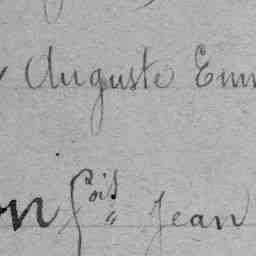 Auguste Em
on fois Jean